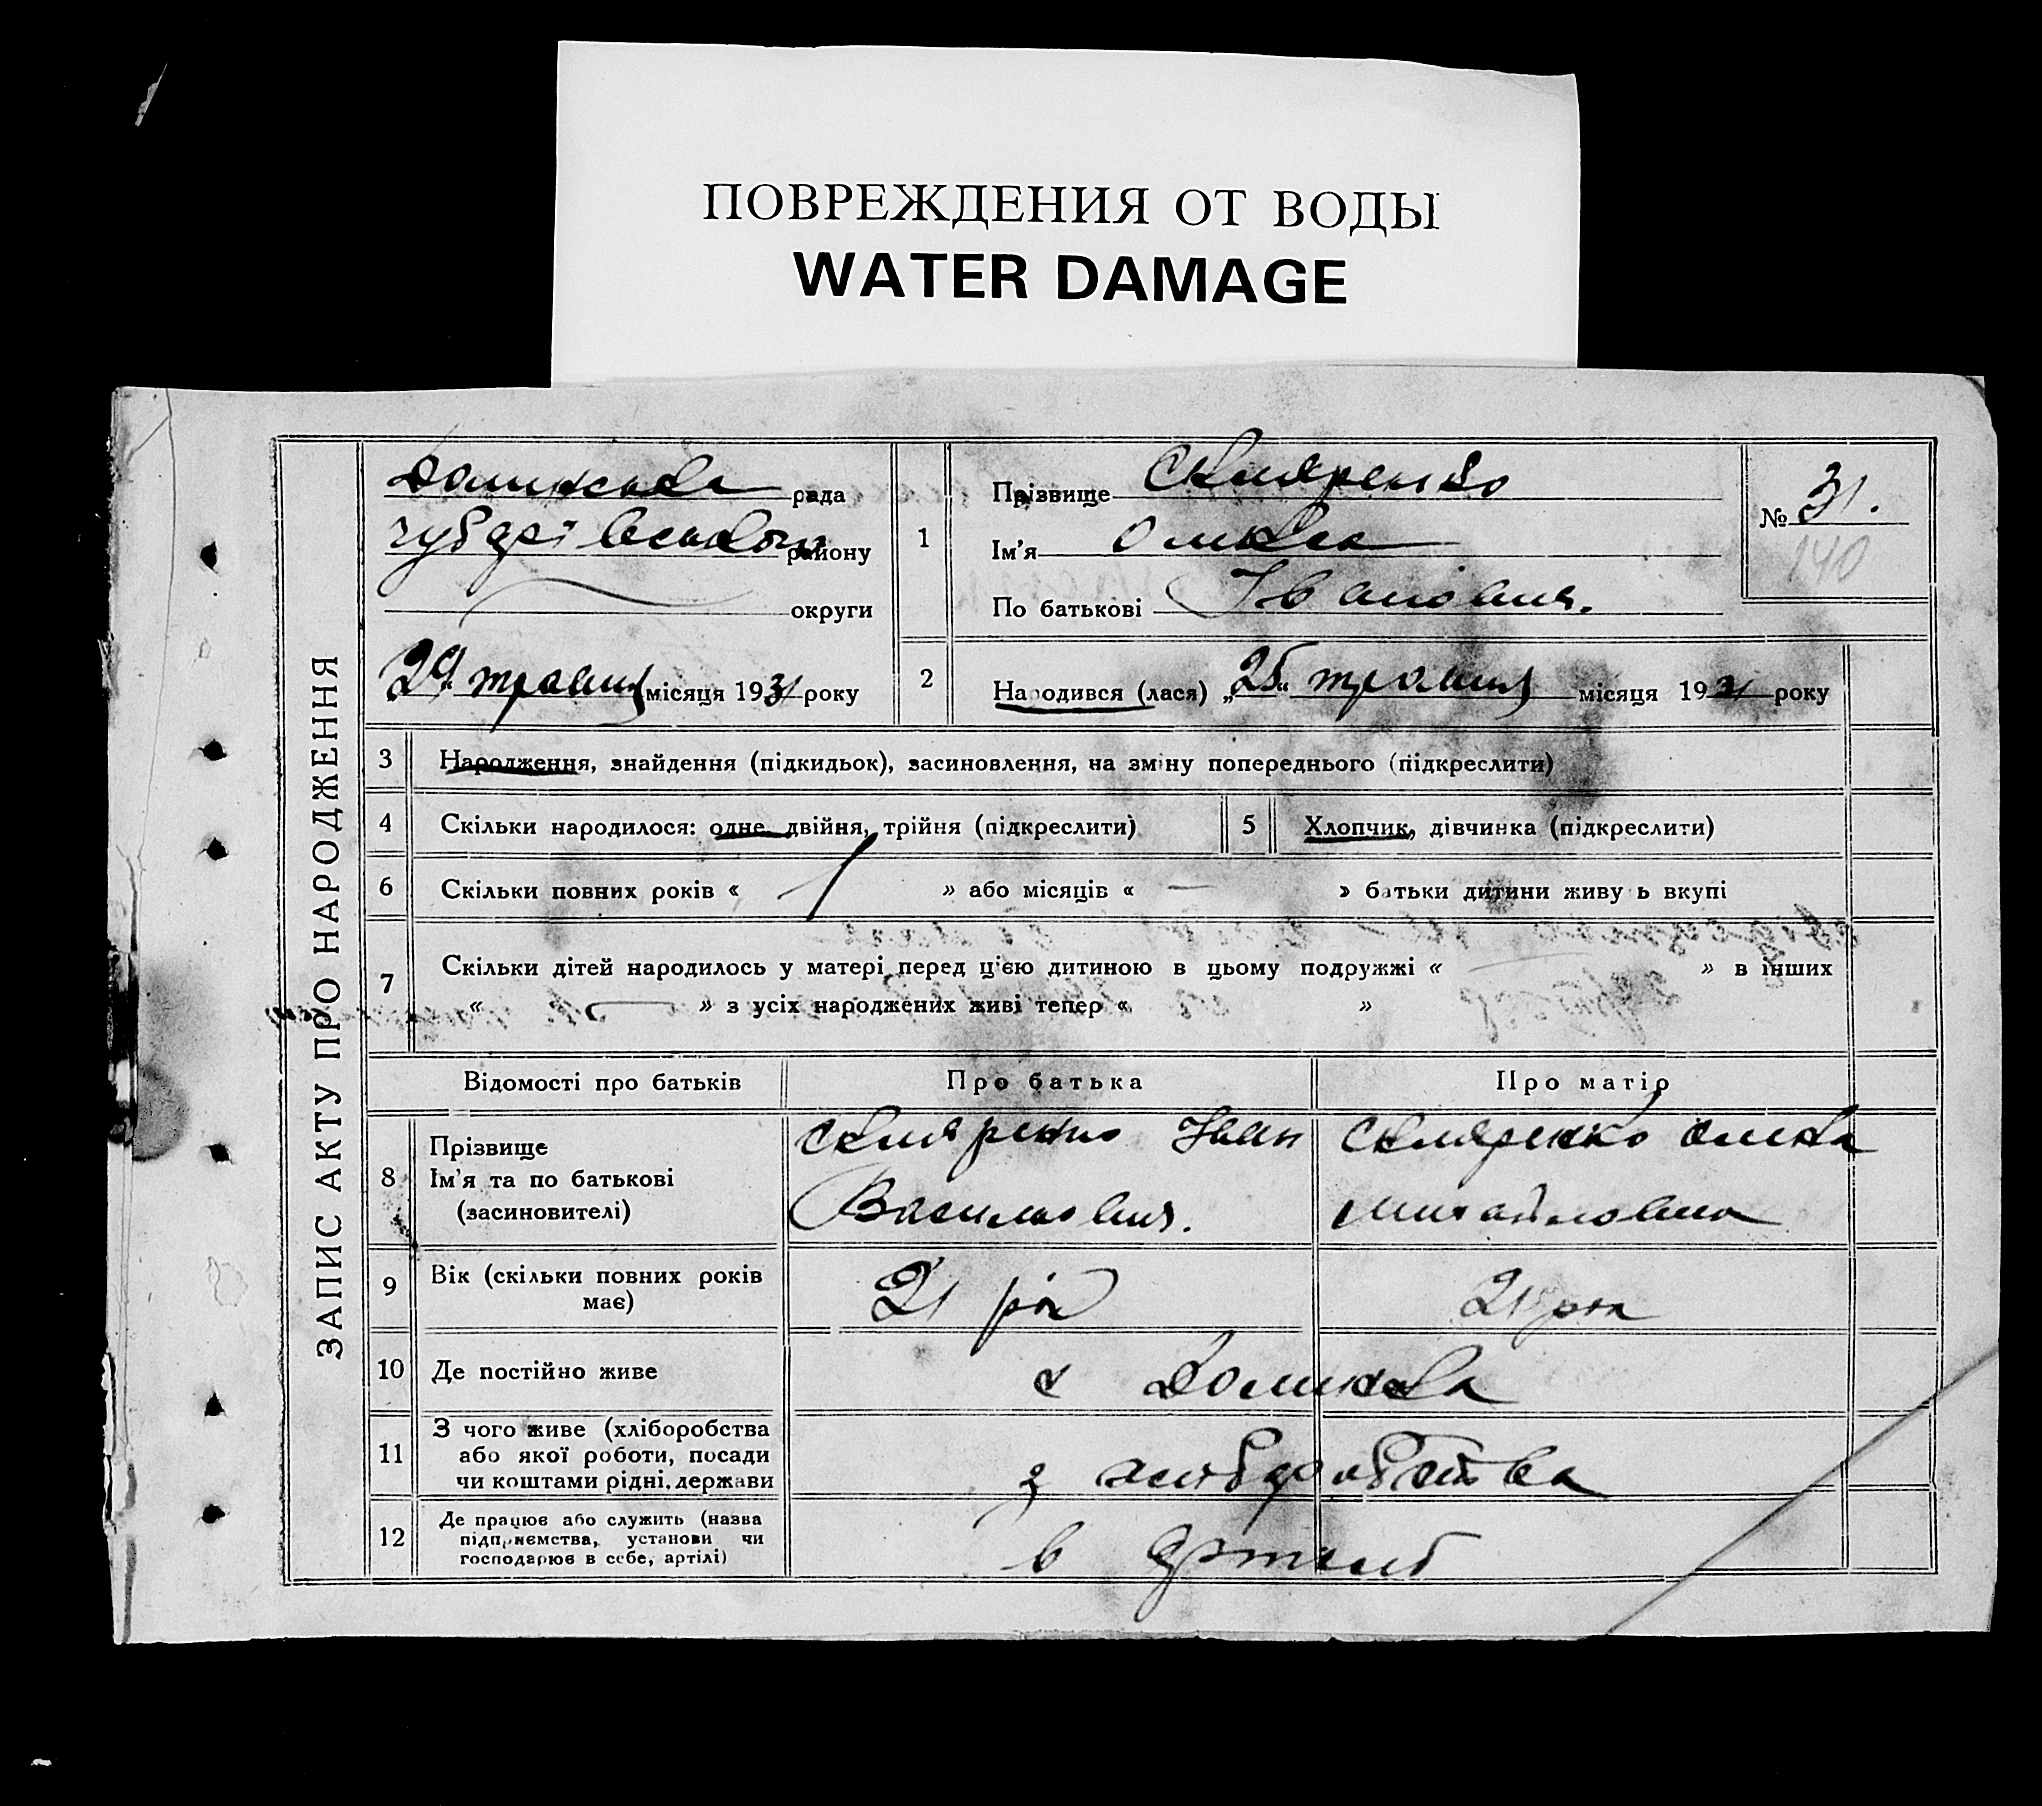 ПОВРЕЖДЕНИЯ ОТ ВОДЫ
WATER DAMAGE
ЗАПИС АКТУ ПРО НАРОДЖЕННЯ
Долинська рада
Чубарівського району
округи
29 травня місяця 1931 року
1
Прізвище Скляренко
Ім'я Олекса
По батькові Іванович.
№ 31.
140
2
Народився (лася) „25“ травня місяця 1931 року
3 Народження, знайдення (підкидьок), засиновлення, на зміну попереднього (підкреслити)
4 Скільки народилося: одне, двійня, трійня (підкреслити)
5 Хлопчик, дівчинка (підкреслити)
6 Скільки повних років « 1 » або місяців « — » батьки дитини живуть вкупі
7 Скільки дітей народилось у матері перед цією дитиною в цьому подружжі « — » в інших
« — » з усіх народжених живі тепер « »
Відомості про батьків Про батька Про матір
8 Прізвище
Ім'я та по батькові
(засиновителі)
Скляренко Іван
Васильович.
Скляренко Олена
Михайловна
9 Вік (скільки повних років
має)
21 рік
21 рік
10 Де постійно живе
с Долинка
11 З чого живе (хліборобства
або якої роботи, посади
чи коштами рідні, держави
з хліборобства
12 Де працює або служить (назва
підприємства, установи чи
господарює в себе, артілі)
в артелі